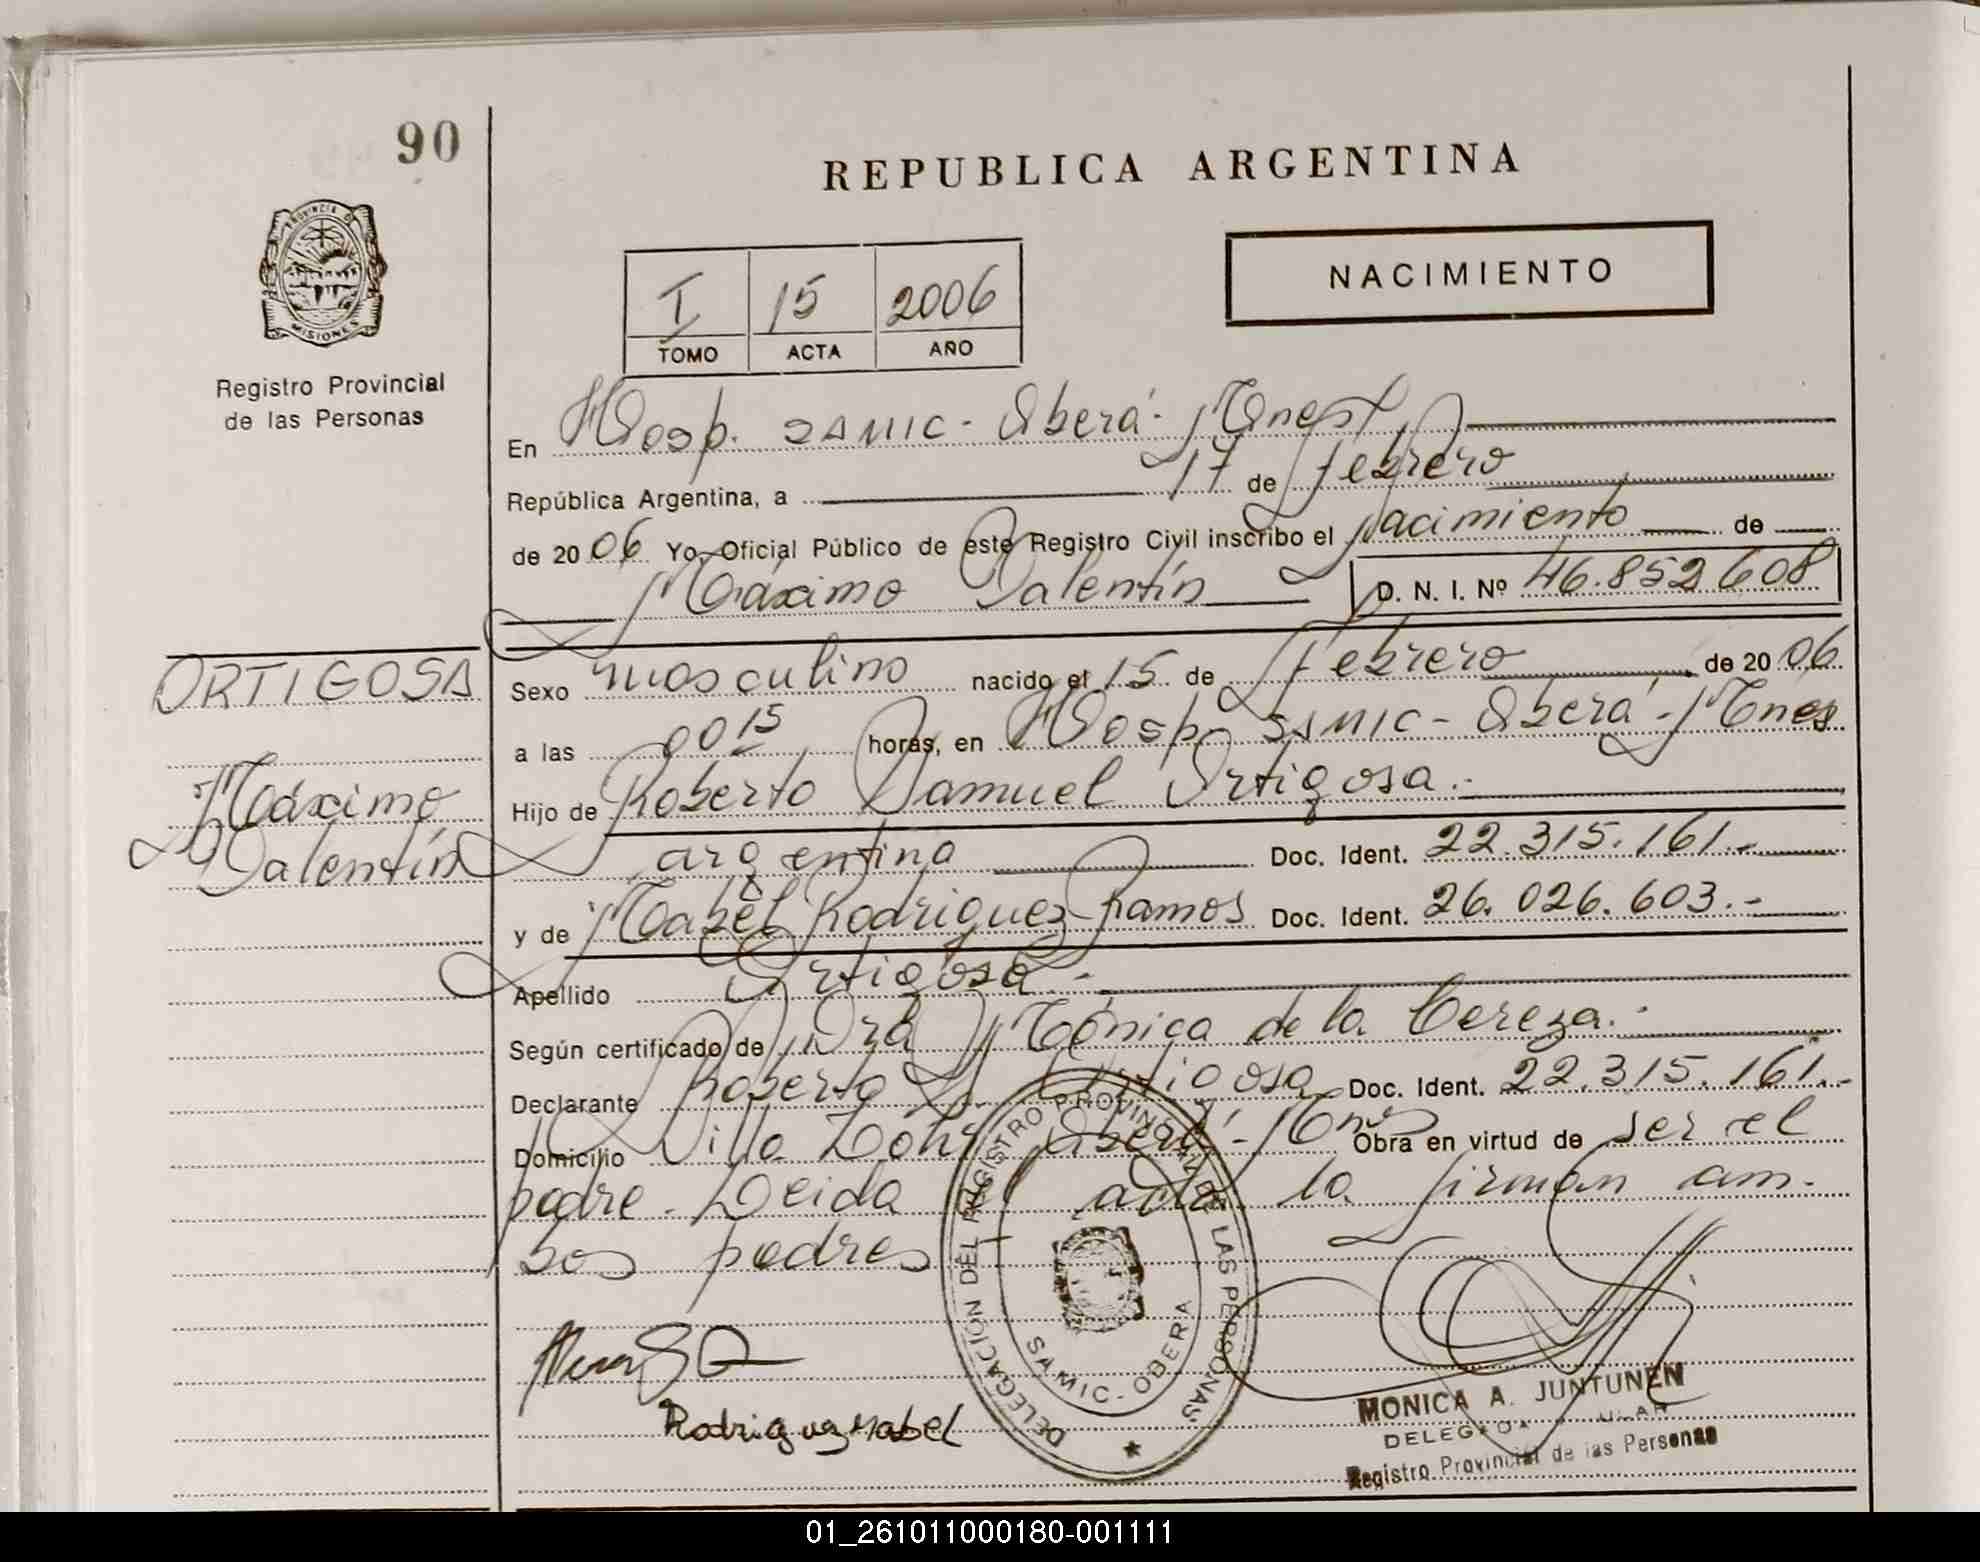 90
REPUBLICA ARGENTINA
PROVINCIA DE MISIONES
Registro Provincial
de las Personas
NACIMIENTO
I 15 2006
TOMO ACTA AÑO
En Hosp. SAMIC - Oberá - Mnes
República Argentina, a 17 de febrero
de 2006 Yo, Oficial Público de este Registro Civil inscribo el nacimiento de
Máximo Valentín D. N. I. Nº 46.852.608
ORTIGOSA
Máximo
Valentín
Sexo masculino nacido el 15 de febrero de 2006
a las 00 15 horas, en Hosp. SAMIC - Oberá - Mnes
Hijo de Roberto Samuel Ortigosa.-
argentino Doc. Ident. 22.315.161.-
y de Mabel Rodriguez Ramos Doc. Ident. 26.026.603.-
Apellido Ortigosa.-
Según certificado de Dra Mónica de la Cereza.-
Declarante Roberto S. Ortigosa Doc. Ident. 22.315.161.-
Domicilio Villa Oberá - Mnes Obra en virtud de ser el
padre. Leida el acta la firman am-
bos padres
Rodriguez Mabel
DELEGACIÓN DEL REGISTRO PROVINCIAL DE LAS PERSONAS
SAMIC - OBERA
MONICA A. JUNTUNEN
DELEGADA TITULAR
Registro Provincial de las Personas
01_261011000180-001111